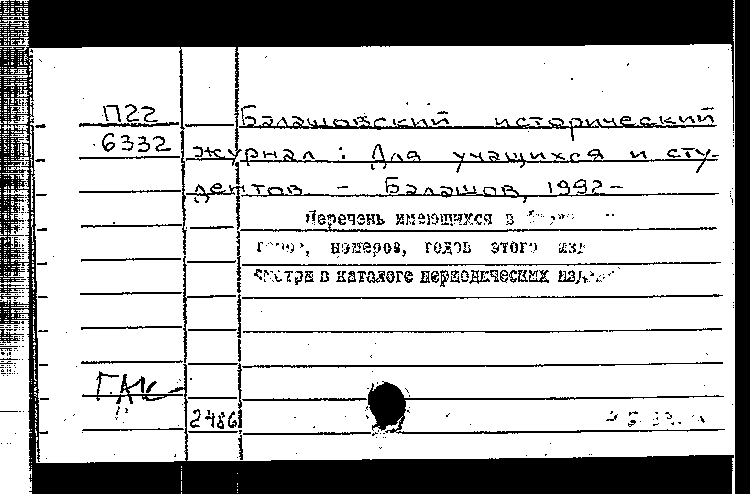 П22
6332
Балашовский исторический
журнал : Для учащихся и сту-
дентов. - Балашов, 1992-
Перечень имеющихся в
номеров, годов этого
смотри в каталоге периодических
ГАК
2486